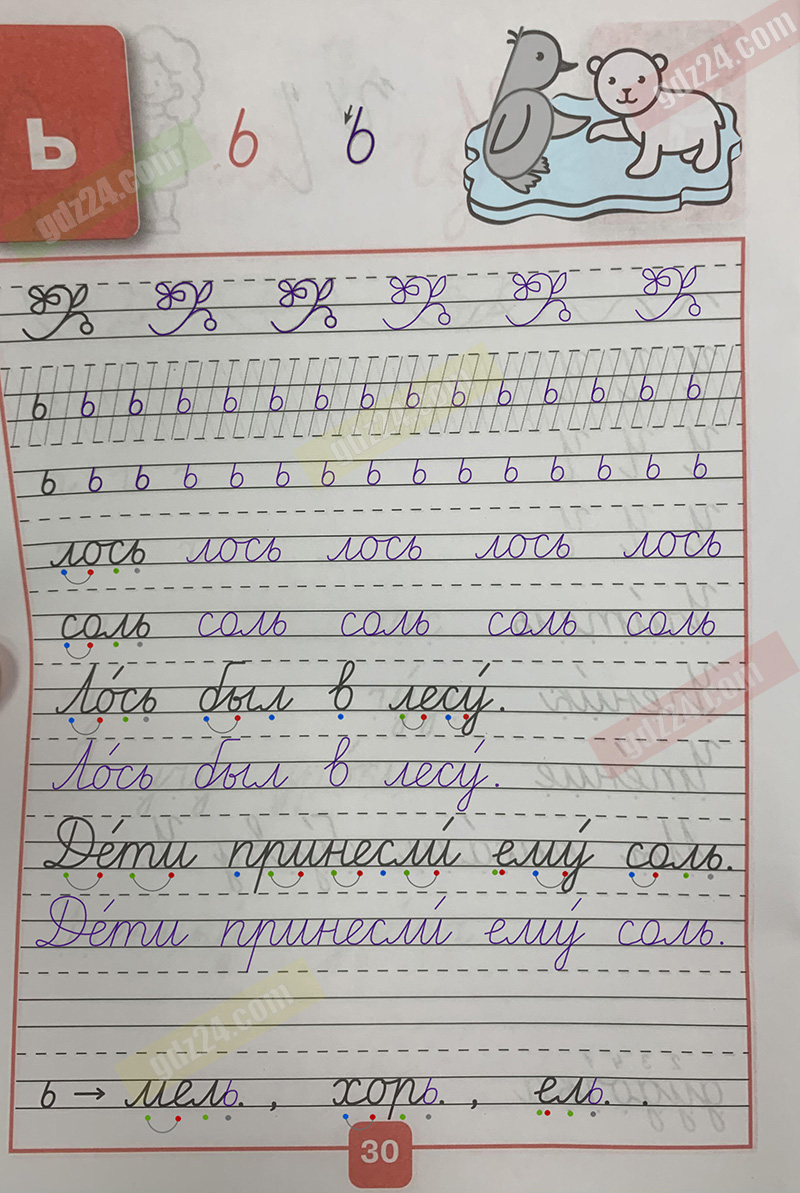 ь
ь ь
ь ь ь ь ь ь ь ь ь ь ь ь ь ь ь
ь ь ь ь ь ь ь ь ь ь ь ь ь ь ь
лось лось лось лось лось
соль соль соль соль соль
Ло́сь был в лесу́.
Ло́сь был в лесу́.
Де́ти принесли́ ему́ соль.
Де́ти принесли́ ему́ соль.
ь → мель. , хорь. , ель. .
30
gdz24.com
gdz24.com
gdz24.com
gdz24.com
gdz24.com